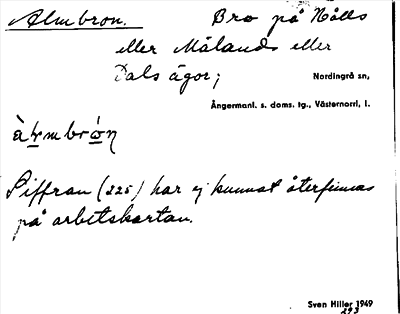 Almbron. Bro på Nålls
eller Målands eller
Dals ägor;
Nordingrå sn,
Ångermanl. s. doms. tg., Västernorrl, l.
Siffran (225) har ej kunnat återfinnas
på arbetskartan.
Sven Hiller 1949
293